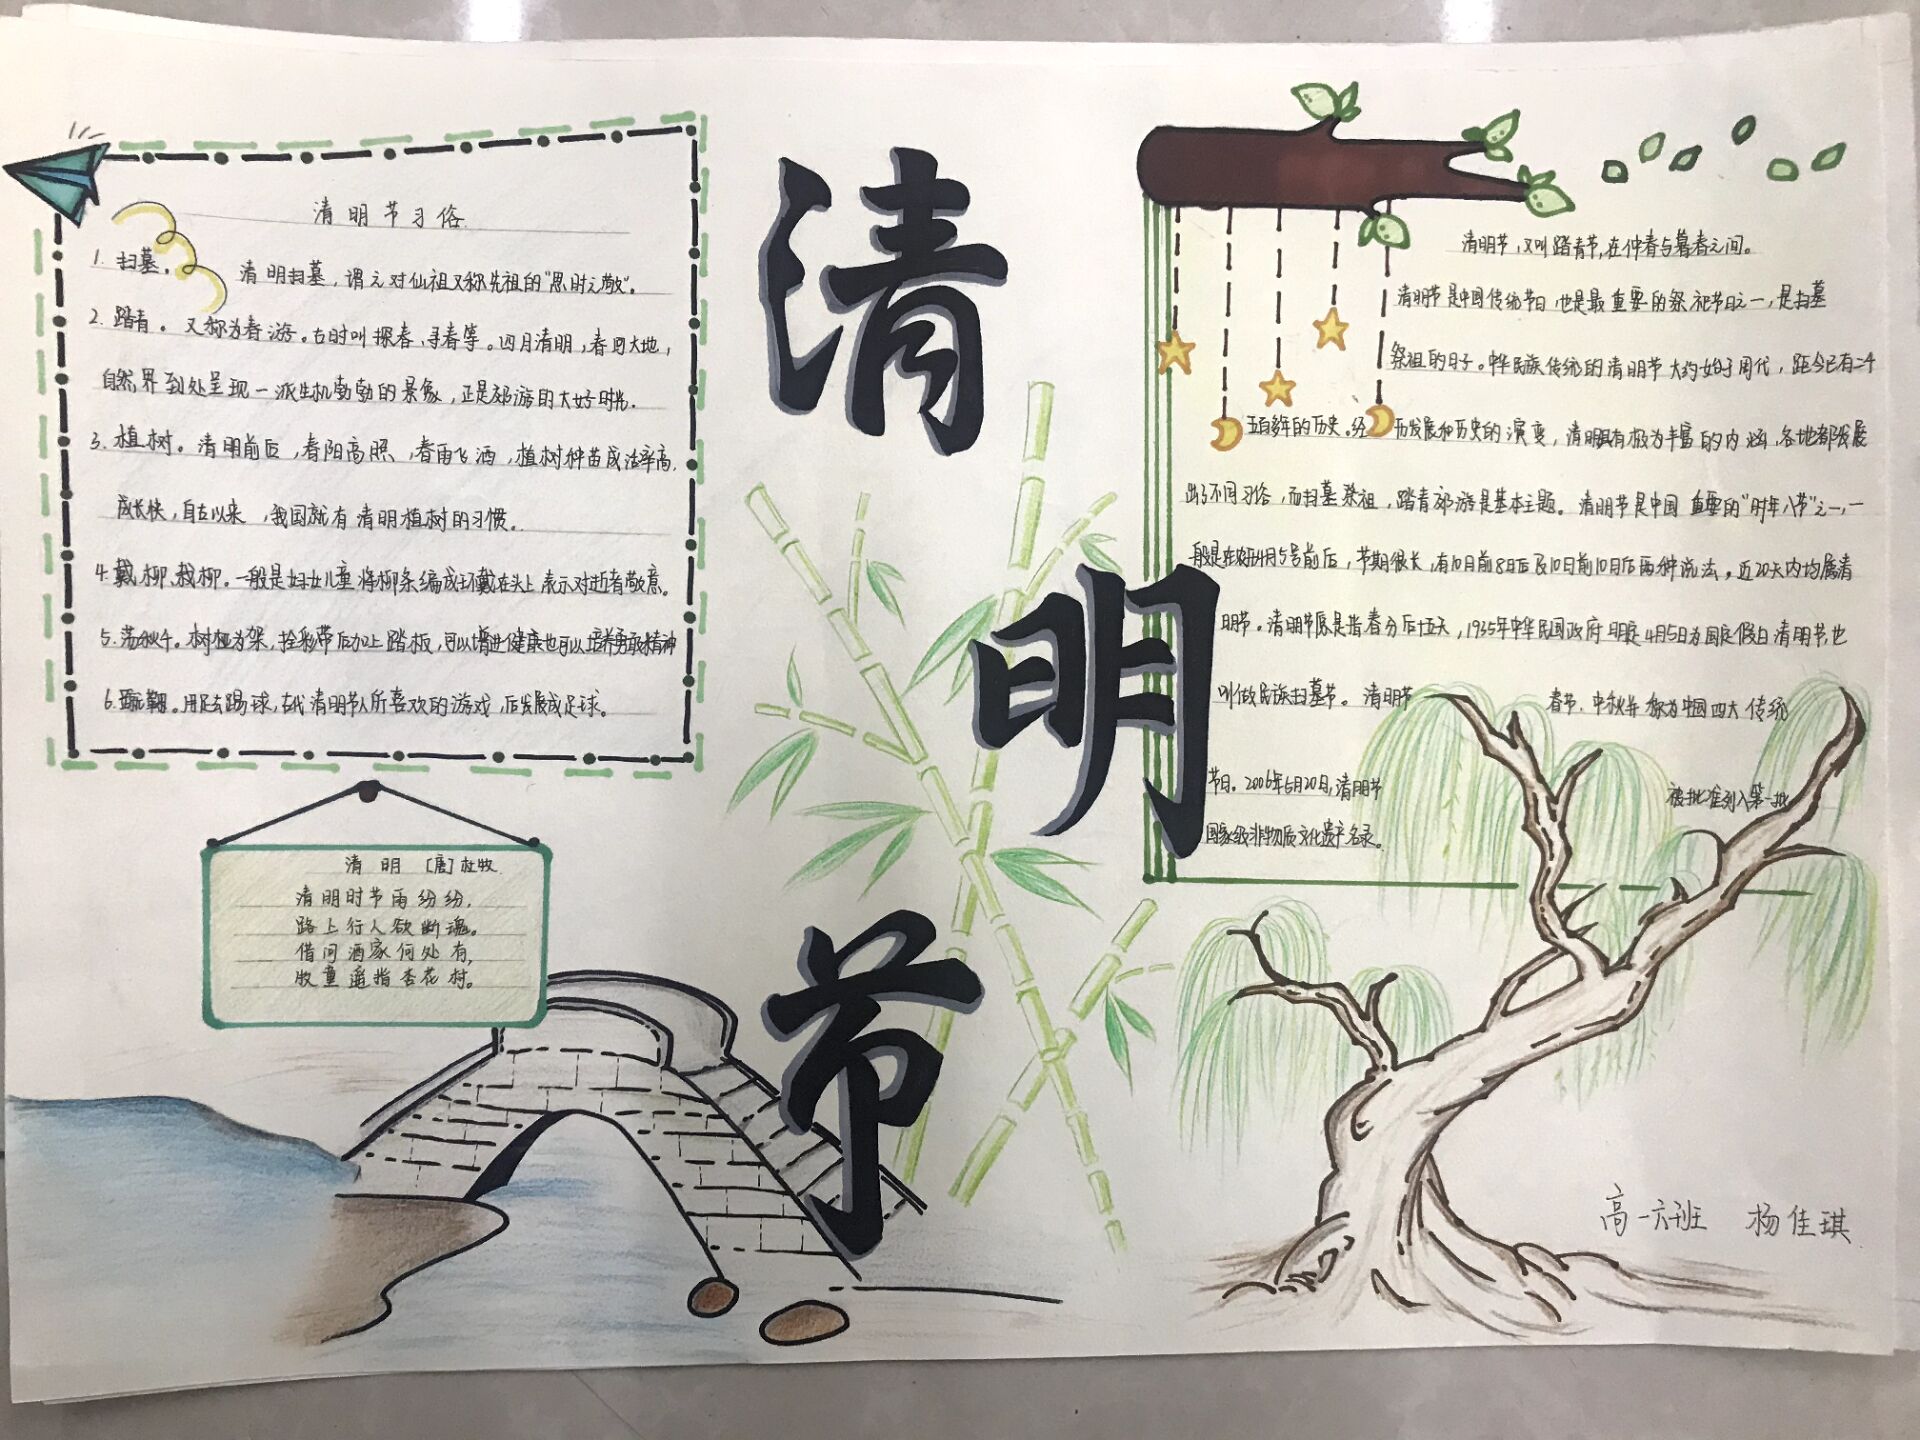 清明节习俗
1. 扫墓。 清明扫墓，谓之对仙祖又称先祖的"思时之敬"。
2. 踏青。又称为春游。古时叫探春、寻春等。四月清明，春回大地，
自然界到处呈现一派生机勃勃的景象，正是郊游的大好时光.
3. 植树。清明前后，春阳高照，春雨飞洒，植树种苗成活率高.
成长快，自古以来，我国就有清明植树的习惯。
4. 戴柳、栽柳。一般是妇女儿童将柳条编成环戴在头上表示对逝者敬意。
5. 荡秋千。树桠为架，拴彩带后加上踏板，可以增进健康也可以培养勇敢精神
6. 。用足去踢球，古代清明节人所喜欢的游戏，后发展成足球。
清明 [唐] 杜牧
清明时节雨纷纷，
路上行人欲断魂。
借问酒家何处有，
牧童遥指杏花村。
清
明
节
清明节，又叫踏青节，在仲春与暮春之间。
清明节是中国传统节日，也是最重要的祭祀节日之一，是扫墓
祭祖的日子。中华民族传统的清明节大约始于周代，距今已有二千
五百多年的历史。经 历发展和历史的演变，清明具有极为丰富的内涵，各地都发展
出了不同习俗，而扫墓祭祖，踏青郊游是基本主题。清明节是中国重要的"时年八节"之一，一
般是在农历4月5号前后，节期很长，有10日前8日后及10日前10日后两种说法。近20天内均属清
明节。清明节原是指春分后十五天，1935年中华民国政府明定4月5日为国定假日清明节，也
叫做民族扫墓节。清明节 春节、中秋并称为中国四大传统
节日。2006年5月20日，清明节 被批准列入第一批
国家级非物质文化遗产名录。
高一六班 杨佳琪